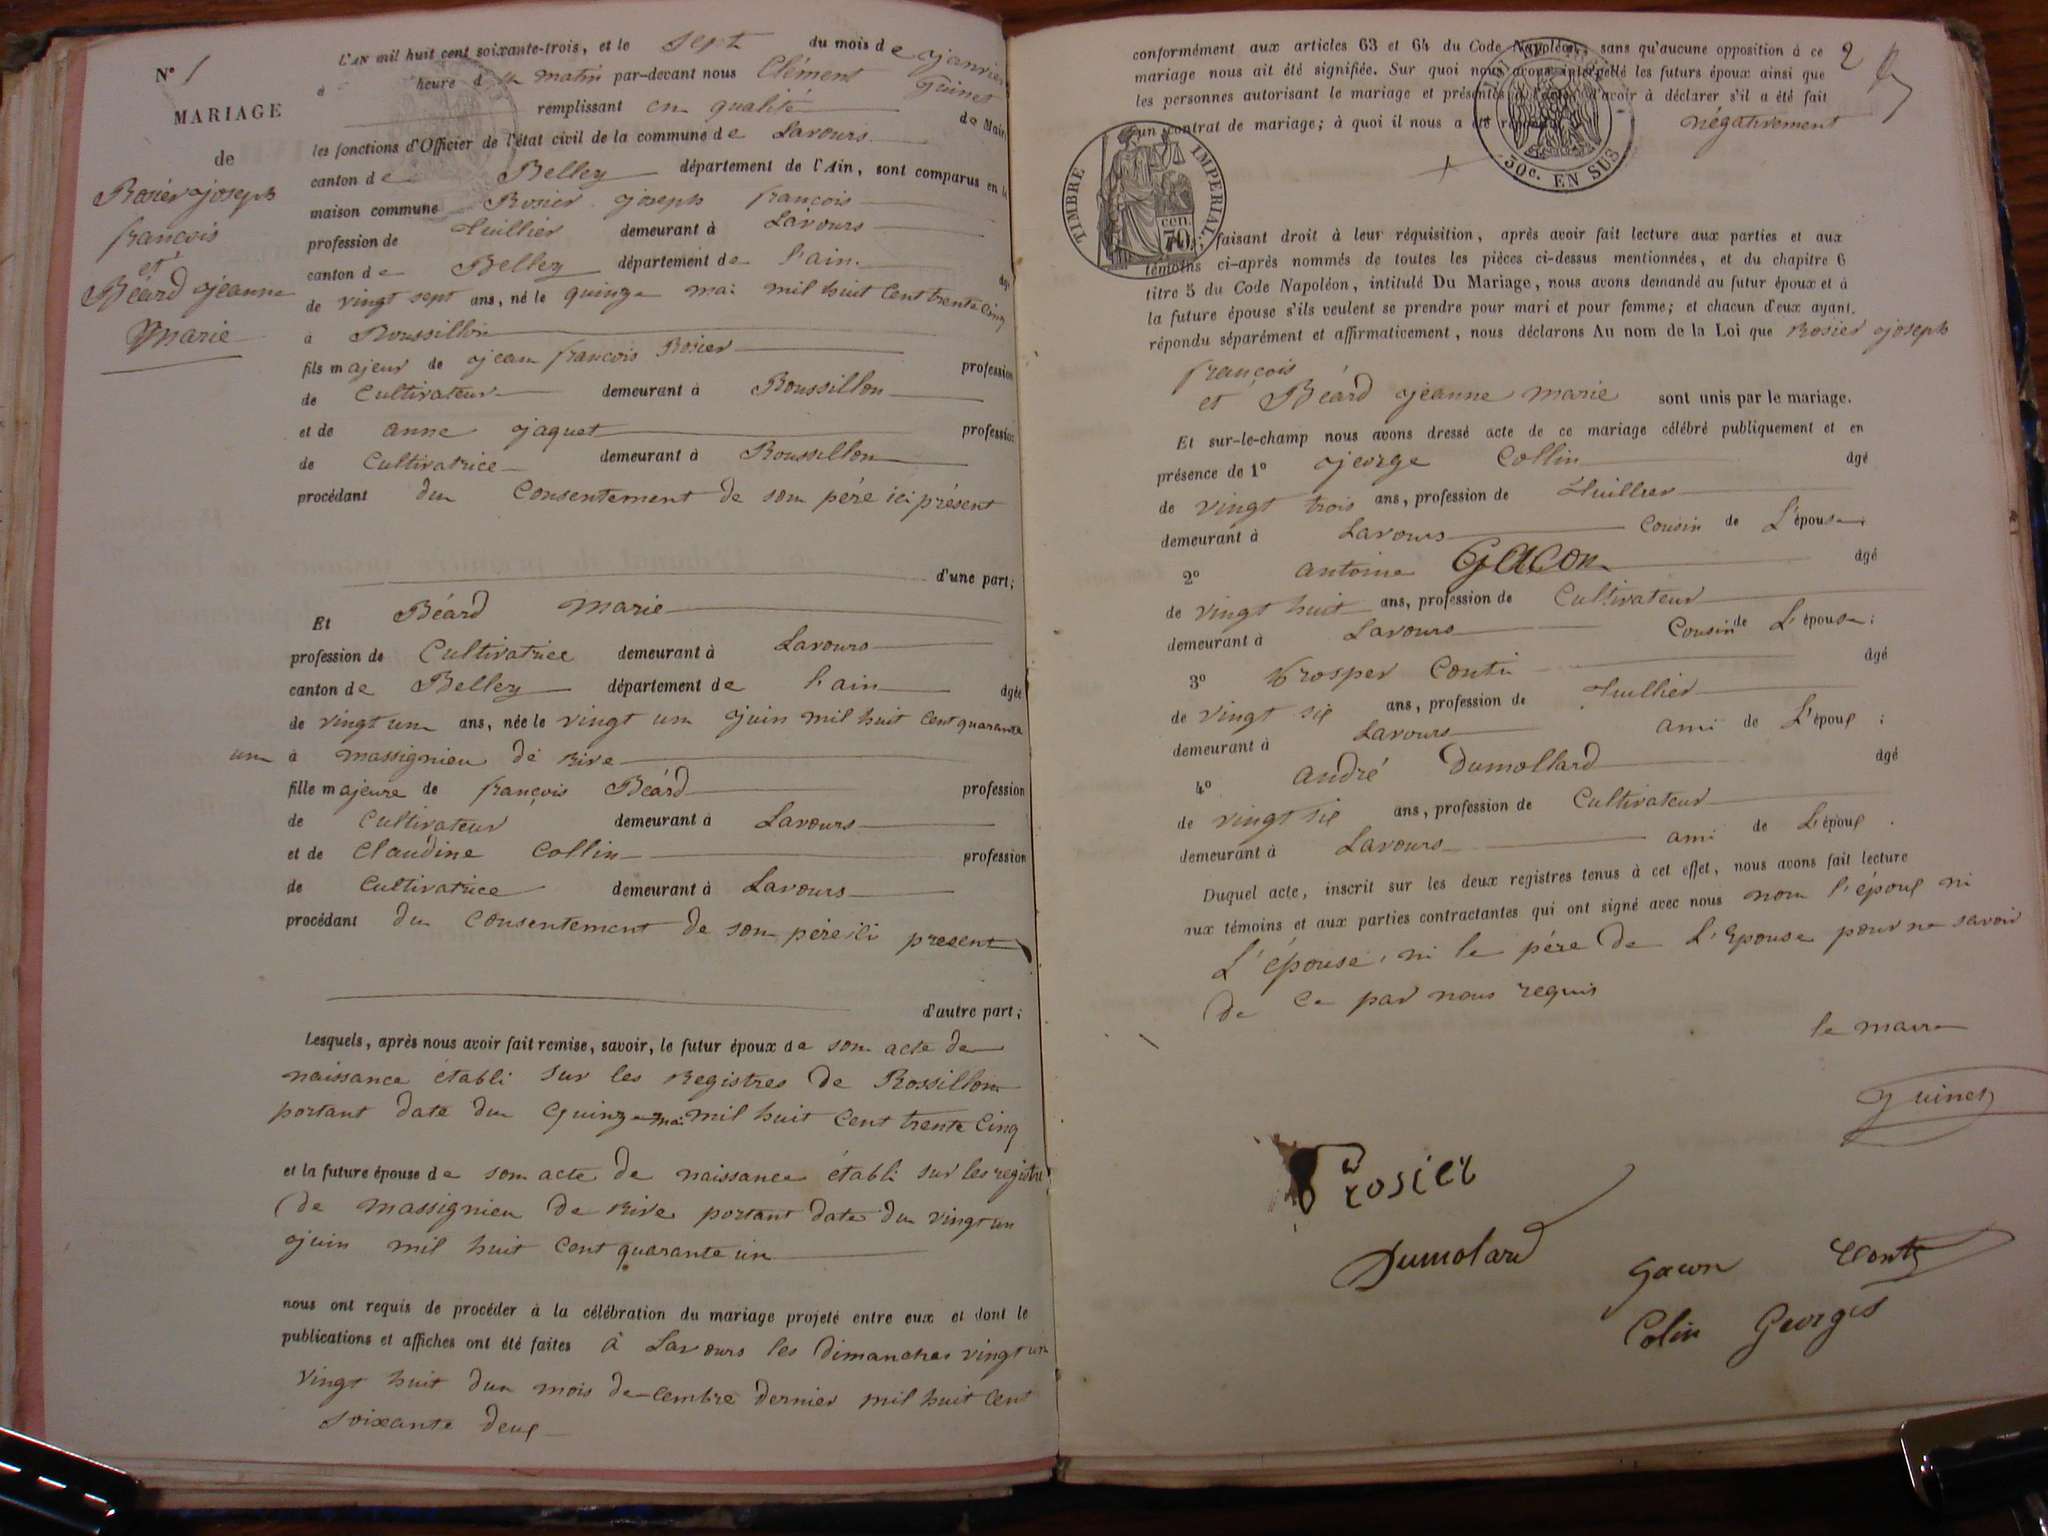 N° 1
MARIAGE
de
Rosier joseph
françois
et
Béard jeanne
marie
L'AN mil huit cent soixante-trois, et le sept du mois de janvier
à heure du matin par-devant nous Clément Guinet
remplissant en qualité de Maire
les fonctions d'Officier de l'état civil de la commune de Lavours
canton de Belley département de l'Ain, sont comparus en la
maison commune Rosier joseph françois
profession de thuillier demeurant à Lavours
canton de Belley département de l'ain
de vingt sept ans, né le quinze mai mil huit cent trente cinq
à Roussillon
fils majeur de jean françois Rosier profession
de Cultivateur demeurant à Roussillon
et de anne jaquet profession
de Cultivatrice demeurant à Roussillon
procédant du Consentement de son pére ici présent
d'une part;
Et Béard marie
profession de Cultivatrice demeurant à Lavours
canton de Belley département de l'ain âgée
de vingt un ans, née le vingt un juin mil huit cent quarante
un à massignieu de rive
fille majeure de françois Béard profession
de Cultivateur demeurant à Lavours
et de Claudine Collin profession
de Cultivatrice demeurant à Lavours
procédant du Consentement de son pére ici present
d'autre part;
Lesquels, après nous avoir fait remise, savoir, le futur époux de son acte de
naissance établi sur les Registres de Rossillon
portant date du Quinze mai mil huit cent trente cinq
et la future épouse de son acte de naissance établi sur les registre
de massignieu de Rive portant date du vingt un
juin mil huit cent quarante un
nous ont requis de procéder à la célébration du mariage projeté entre eux et dont le
publications et affiches ont été faites à Lavours les dimanches vingt un
vingt huit du mois de cembre dernier mil huit cent
soixante deux
2
conformément aux articles 63 et 64 du Code Napoléon, sans qu'aucune opposition à ce
mariage nous ait été signifiée. Sur quoi nous avons interpellé les futurs époux ainsi que
les personnes autorisant le mariage et présentes à l'acte d'avoir à déclarer s'il a été fait
un contrat de mariage; à quoi il nous a été répondu négativement
30c. EN SUS
TIMBRE IMPERIAL
cen. 70.
faisant droit à leur réquisition, après avoir fait lecture aux parties et aux
témoins ci-après nommés de toutes les pièces ci-dessus mentionnées, et du chapitre 6
titre 5 du Code Napoléon, intitulé Du Mariage, nous avons demandé au futur époux et à
la future épouse s'ils veulent se prendre pour mari et pour femme; et chacun d'eux ayant
répondu séparément et affirmativement, nous déclarons Au nom de la Loi que Rosier joseph
françois
et Béard jeanne marie sont unis par le mariage.
Et sur-le-champ nous avons dressé acte de ce mariage célébré publiquement et en
présence de 1° george Collin âgé
de vingt trois ans, profession de thuillier
demeurant à Lavours Cousin de L'épouse;
2° antoine Gacon âgé
de vingt huit ans, profession de Cultivateur
demeurant à Lavours Cousin de L'épouse;
3° Prosper Conti âgé
de vingt six ans, profession de thuillier
demeurant à Lavours ami de L'époux;
4° andré Dumollard âgé
de vingt six ans, profession de Cultivateur
demeurant à Lavours ami de L'époux.
Duquel acte, inscrit sur les deux registres tenus à cet effet, nous avons fait lecture
aux témoins et aux parties contractantes qui ont signé avec nous non l'époux ni
L'épouse, ni le pére de L'Epouse pour ne savoir
de ce par nous requis
le maire
Guinet
Rosier
Dumolard
Gacon
Conti
Colin Georges